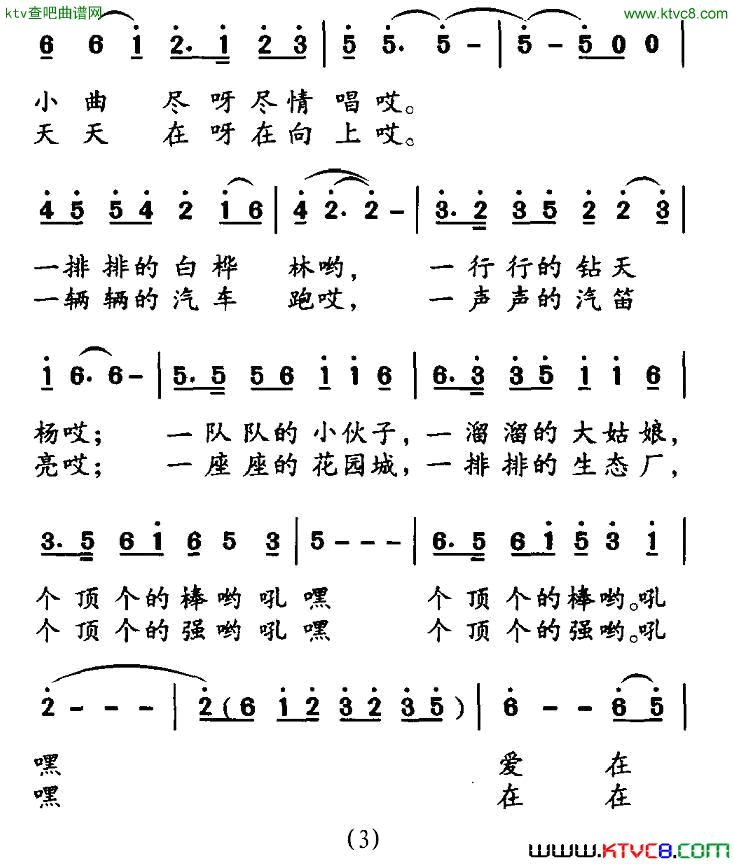 ktv查吧曲谱网 www.ktvc8.com
6 6 1 2. 1 2 3 | 5 5. 5 - | 5 - 5 0 0 |
小曲 尽呀尽情唱哎。
天天 在呀在向上哎。
4 5 5 4 2 1 6 | 4 2. 2 - | 3. 2 3 5 2 2 3 |
一排排的白桦 林哟， 一行行的钻天
一辆辆的汽车 跑哎， 一声声的汽笛
1 6. 6 - | 5. 5 5 6 1 1 6 | 6. 3 3 5 1 1 6 |
杨哎； 一队队的小伙子，一溜溜的大姑娘，
亮哎； 一座座的花园城，一排排的生态厂，
3. 5 6 1 6 5 3 | 5 - - - | 6. 5 6 1 5 3 1 |
个顶个的棒哟吼嘿 个顶个的棒哟。吼
个顶个的强哟吼嘿 个顶个的强哟。吼
2 - - - | 2 ( 6 1 2 3 2 3 5 ) | 6 - - 6 5 |
嘿 爱 在
嘿 在 在
(3)
www.KTVC8.com